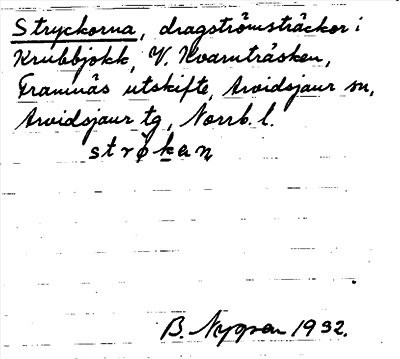 Stryckorna, dragströmsträckor i
Krubbjokk, V. Kvarnträsken,
Framnäs utskifte, Arvidsjaur sn,
Arvidsjaur tg, Norrb. l.
strökan
B. Nygren 1932.